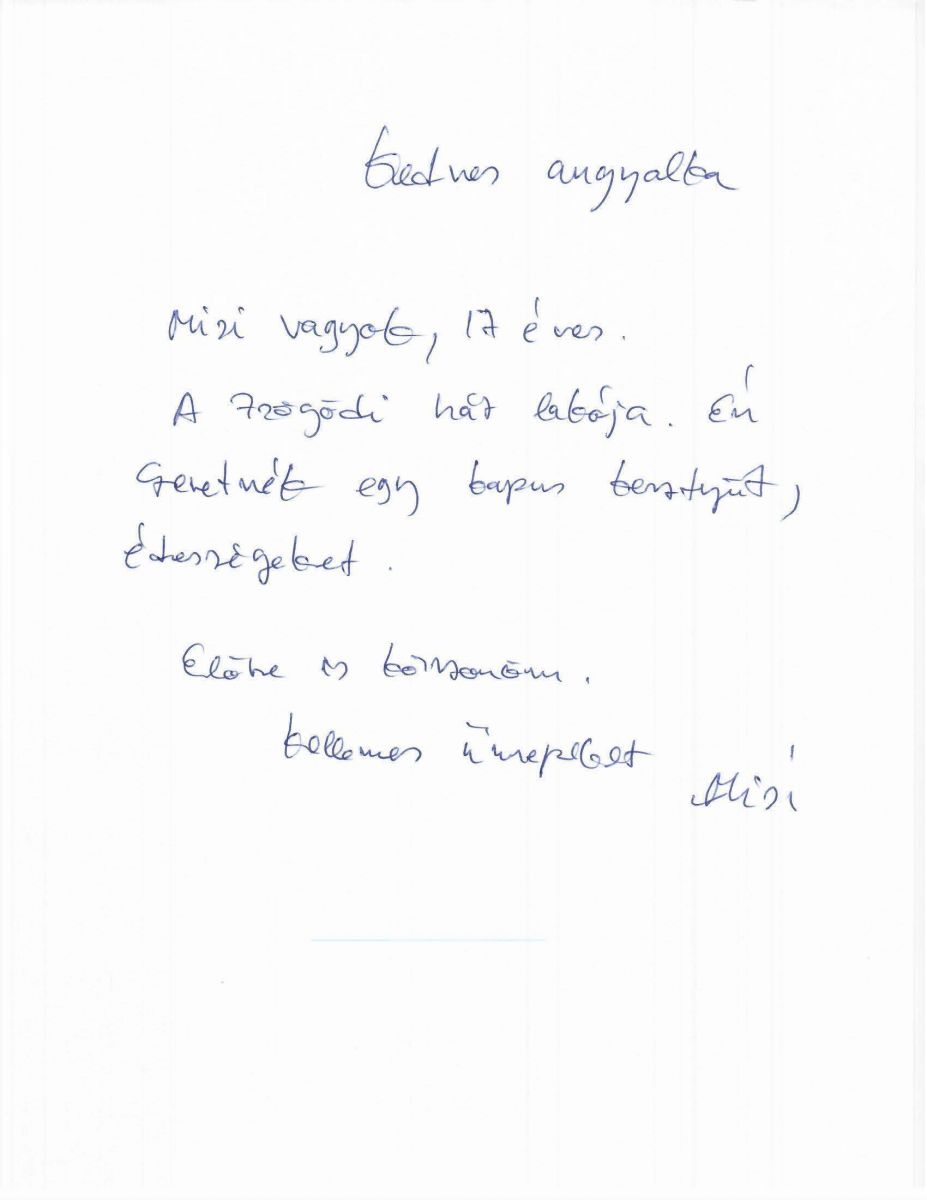 Kedves angyalka
Misi vagyok, 17 éves.
A Zsögödi ház lakója. Én
szeretnék egy kapus kesztyűt,
édességeket.
Előre is köszönöm.
Kellemes ünnepeket
Misi